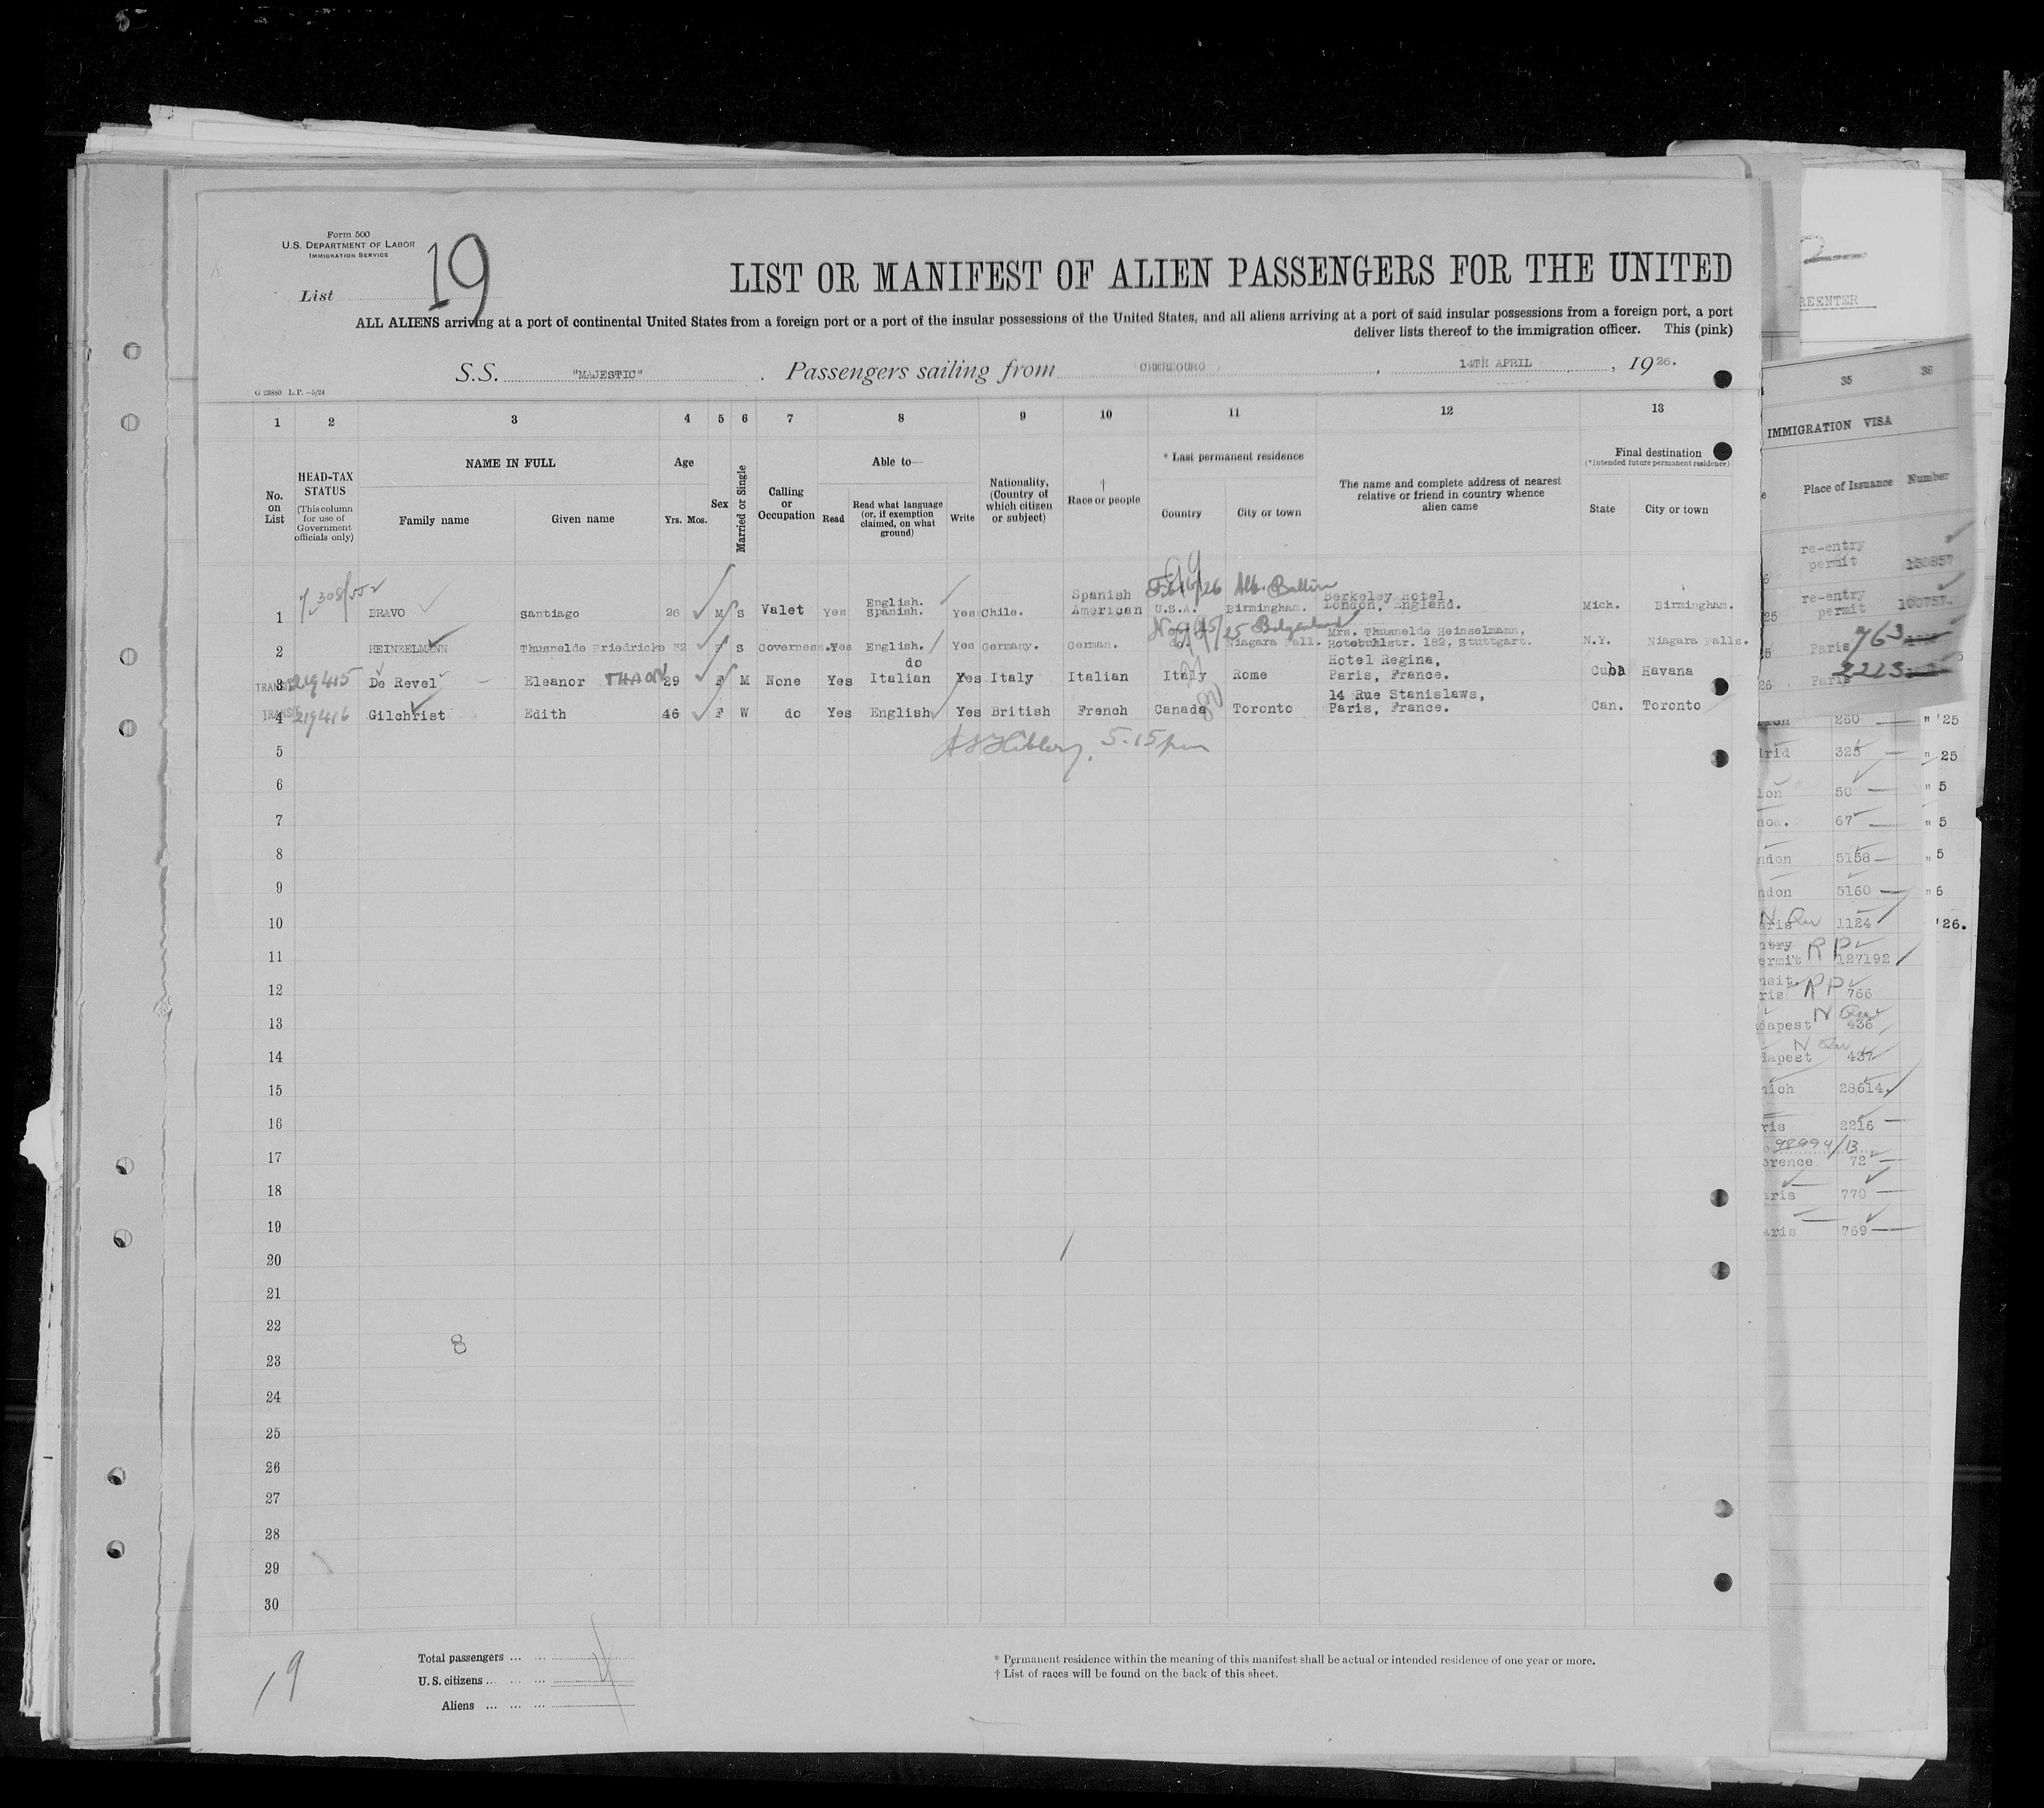 Form 500
U.S. DEPARTMENT OF LABOR
IMMIGRATION SERVICE
List 19
LIST OR MANIFEST OF ALIEN PASSENGERS FOR THE UNITED
ALL ALIENS arriving at a port of continental United States from a foreign port or a port of the insular possessions of the United States, and all aliens arriving at a port of said insular possessions from a foreign port, a port
deliver lists thereof to the immigration officer. This (pink)
S.S. "MAJESTIC" . Passengers sailing from CHERBOURG , 14TH APRIL , 1926.
G 23880 L.P. —5/24
1 2 3 4 5 6 7 8 9 10 11 12 13
No. on List
HEAD-TAX STATUS
(This column for use of Government officials only)
NAME IN FULL
Family name Given name
Age
Yrs. Mos.
Sex
Married or Single
Calling or Occupation
Able to—
Read
Read what language (or, if exemption claimed, on what ground)
Write
Nationality, (Country of which citizen or subject)
† Race or people
* Last permanent residence
Country City or town
The name and complete address of nearest relative or friend in country whence alien came
Final destination
(*intended future permanent residence)
State City or town
Feb 6/26 Alb. Ballin
1 BRAVO Santiago 26 M S Valet Yes English. Spanish. Yes Chile. Spanish American U.S.A. Birmingham. Berkeley Hotel London, England. Mich. Birmingham.
Nov 25/25 Belgenland
2 HEINZELMANN Thusnelde Friedricke 32 F S Governess. Yes English. Yes Germany. German. do. Niagara Fall. Mrs. Thusnelde Heinselmann, Rotebuhlstr. 182, Stuttgart. N.Y. Niagara Falls.
TRANSIT 3 219415 De Revel Eleanor THAON 29 F M None Yes do Italian Yes Italy Italian Italy Rome Hotel Regina, Paris, France. Cuba Havana
TRANSIT 4 219416 Gilchrist Edith 46 F W do Yes English Yes British French Canada Toronto 14 Rue Stanislaws, Paris, France. Can. Toronto
5.15 pm
5
6
7
8
9
10
11
12
13
14
15
16
17
18
19
20
21
22
8
23
24
25
26
27
28
29
30
19
Total passengers ... ...
U. S. citizens ... ... ...
Aliens ... ... ...
* Permanent residence within the meaning of this manifest shall be actual or intended residence of one year or more.
† List of races will be found on the back of this sheet.
REENTER
35 36
IMMIGRATION VISA
Place of Issuance Number
re-entry permit 130857
re-entry permit 100757
Paris 763
Paris 2213
260 " '25
325 " 25
50 " 5
67 " 5
5158 " 5
5160 " 6
1124 '26.
RP 127192
RP 766
436
437
28614
2216
98994/13
72
770
769